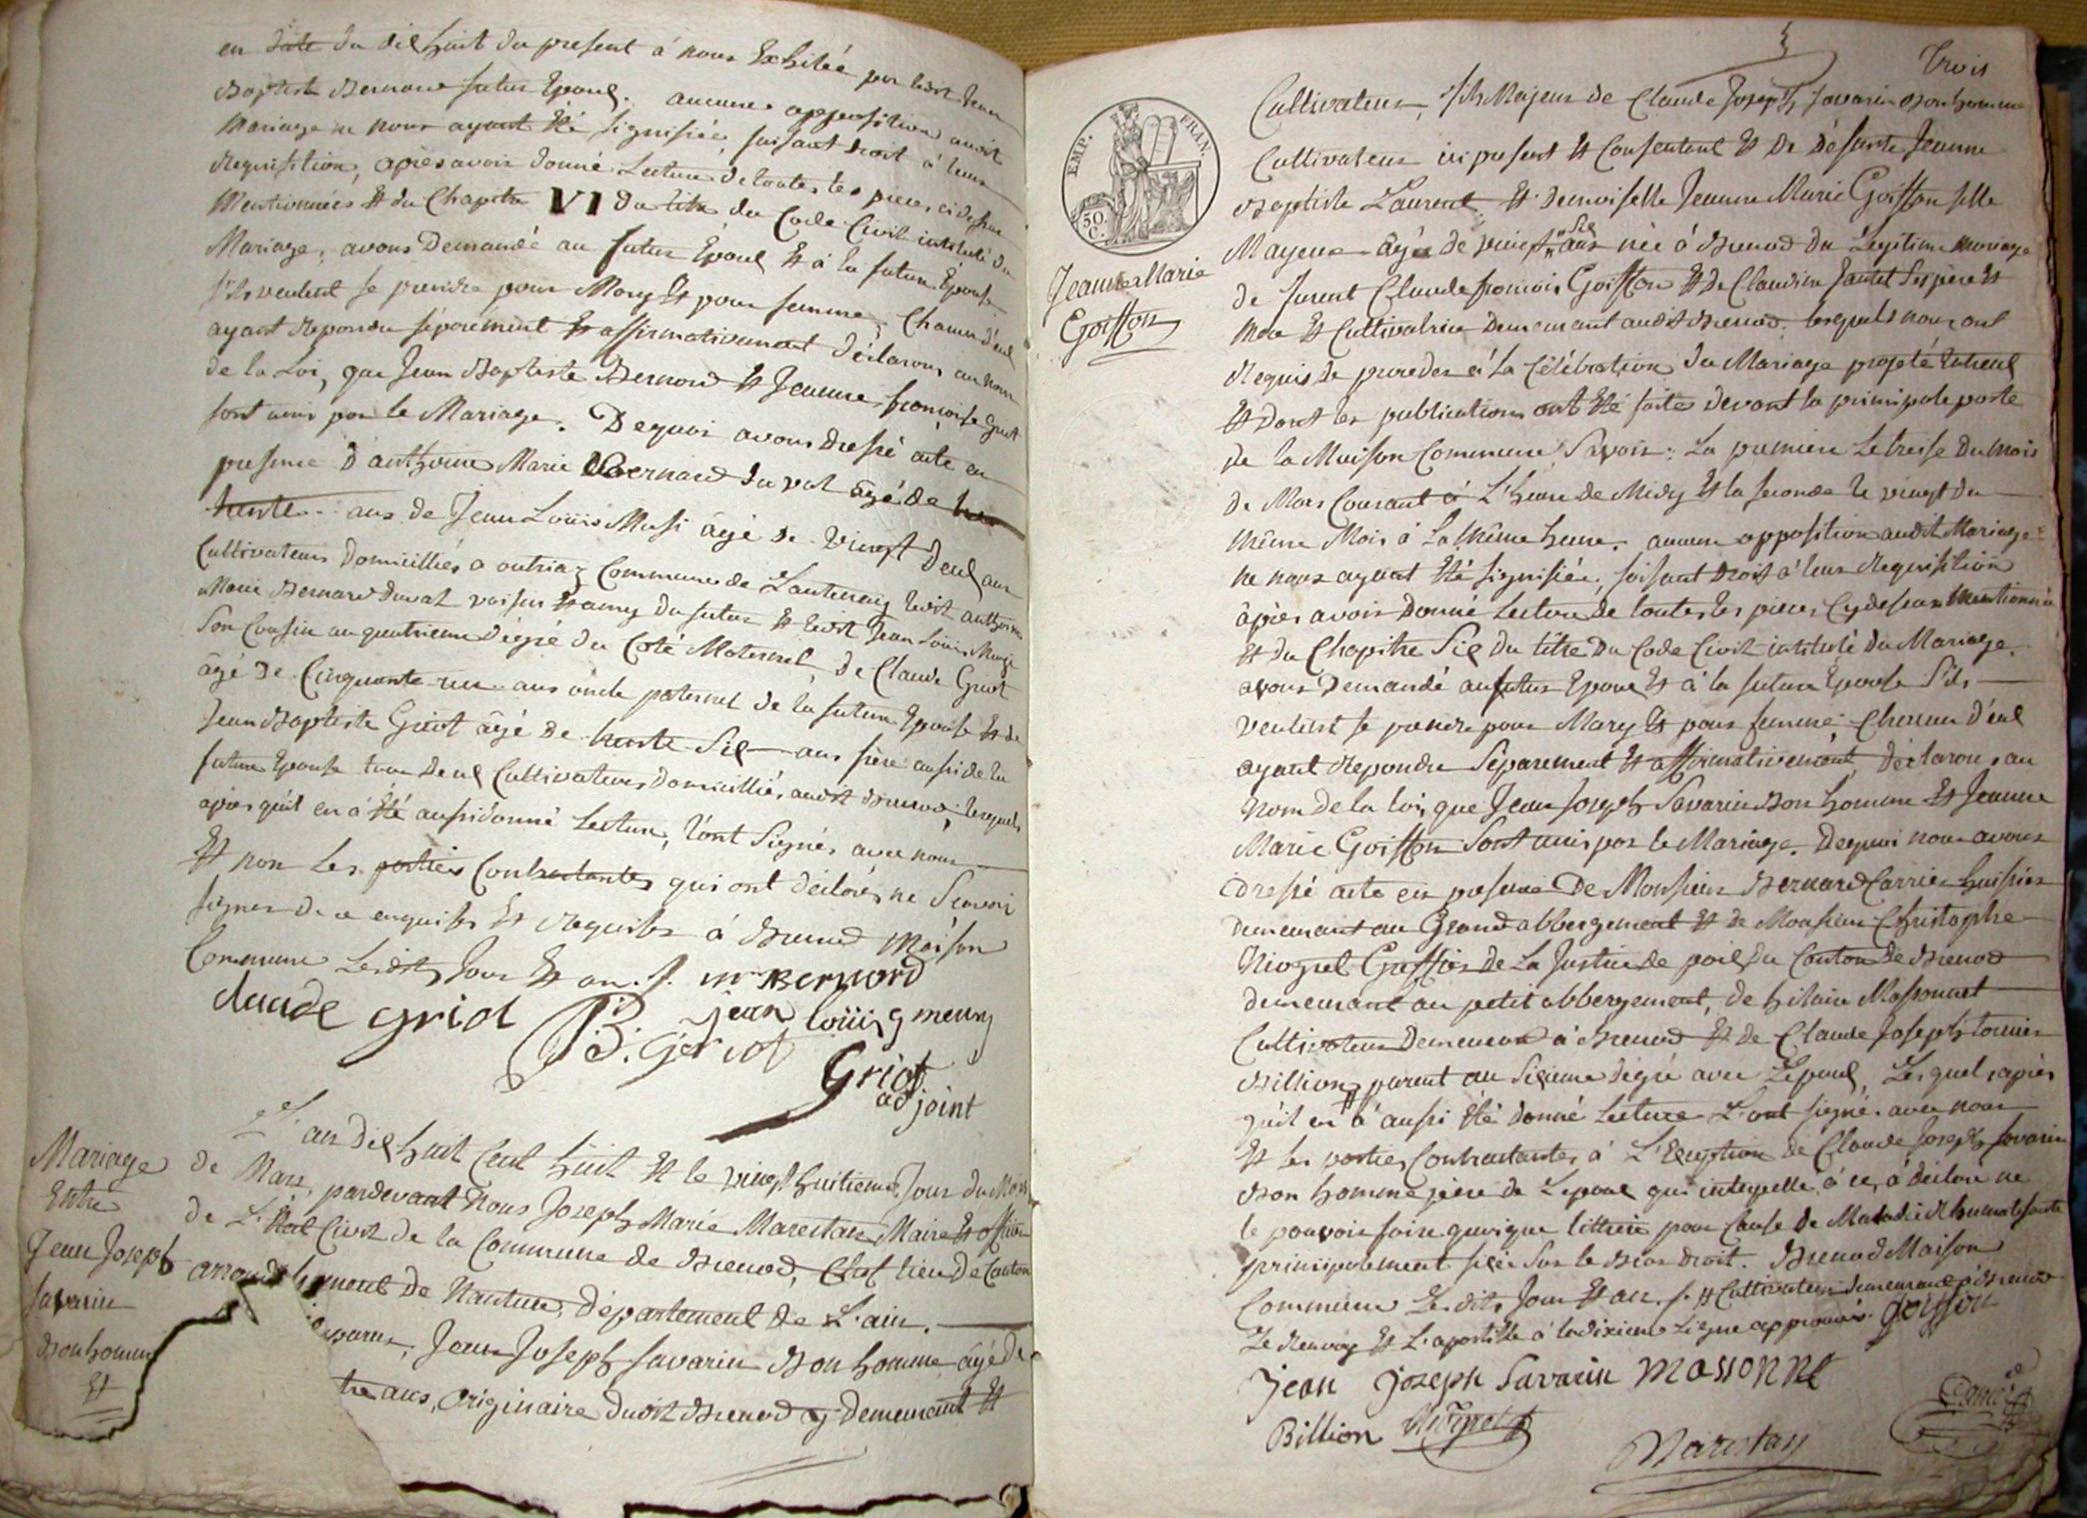 en date du dix huit du present à nous Exhibée par ledit Jean
Baptiste Bernard futur Epoux. aucune opposition audit
Mariage ne nous ayant été signifiée, faisant droit à leur
Requisition, après avoir donné Lecture de toutes les pieces ci dessus
Mentionnées Et du Chapitre VI du titre du Code Civil intitulé du
Mariage, avons Demandé au futur Epoux Et à la future Epouse
s'ils veulent se prendre pour Mary Et pour femme, Chacun d'eux
ayant Repondu séparement Et affirmativement déclarons au nom
de la Loi, que Jean Baptiste Bernard Et Jeanne françoise Griot
sont unis par le Mariage. De quoi avons dressé acte en
presence d'anthoine Marie Bernard du val âgé de
trente ans de Jean Louis âgé de vingt deux ans
Cultivateurs domiciliés a outriaz Commune de Lantenay ledit anthoine
Marie Bernard duval voisin Et amy du futur Et ledit Jean Louis
Son Cousin au quatrieme dégré du Coté Maternel, de Claude Griot
âgé de Cinquante un ans oncle paternel de la future Epouse Et de
Jean Baptiste Griot âgé de trente Six ans frère aussi de la
future Epouse tous deux Cultivateurs domiciliés audit Brenod, lesquels
après qu'il en à été aussi donné Lecture, l'ont Signés avec nous
Et non les parties Contractantes qui ont déclarés ne Scavoir
signer de ce enquises Et Requises à Brenod Maison
Commune Lesdits Jour Et an.
Bernard
claude griot
jean louis
J B. Geriot
Griot
adjoint
Mariage
Entre
Jean Joseph
Savarin
Bonhomme
Et
L'an dix huit Cent huit Et le vingt huitieme Jour du Mois
de Mars, pardevant Nous Joseph Marie Marestan Maire Et officier
de L'état Civil de la Commune de Brenod, Chef lieu de Canton
arrondissement de Nantua, département de L'ain.
Jean Joseph Savarin Bon homme âgé de
ans, Originaire dudit Brenod y demeurant Et
Trois
EMP. FRAN.
50 C.
Jeanne Marie
Goiffon
Cultivateur, fils Majeur de Claude Joseph Savarin Bonhomme
Cultivateur ici present Et Consentent Et de défunte Jeanne
Baptiste Laurent Et demoiselle Jeanne Marie Goiffon fille
Mayeure âgée de vingt six ans née à Brenod du Legitime mariage
de furent Claude françois Goiffon Et de Claudine Jantet Ses père Et
Mere Et Cultivatrice demeurant audit Brenod. lesquels nous ont
Requis de proceder à la Célébration du Mariage projeté Entreux
Et dont les publications ont été faites devant la principale porte
de la Maison Commune, Savoir: La premiere Le treise du mois
de Mars Courant à L'heure de Midy Et la seconde le vingt du
même Mois à La même heure. aucune opposition audit Mariage
ne nous ayant été signifiée, faisant droit à leur Requisition
après avoir Donné Lecture de toutes les pieces Cy dessus Mentionnée
Et du Chapitre Six du titre du Code Civil intitulé du Mariage.
avons Demandé au futur Epoux Et à la future Epouse S'ils
veulent se prendre pour Mary Et pour femme; Chacun d'eux
ayant Repondu Séparement Et affirmativement, déclarons au
Nom de la loi, que Jean Joseph Savarin Bon homme Et Jeanne
Marie Goiffon Sont unis par le Mariage. Dequoi nous avons
dressé acte en presence De Monsieur Bernard Carrier huissier
demeurant au Grand abbergement Et de Monsieur Christophe
Niogret Greffier de la Justice de paix du Canton de Brenod
demeurant au petit abbergement, de hilaire Massonnet
Cultivateur Demeurant à Brenod Et de Claude Joseph
Billion parent au Sixieme dégré avec L'epoux, Lesquels après
qu'il en à aussi été donné Lecture L'ont signés avec nous
Et les parties Contractantes à L'Exception de Claude Joseph Savarin
Bon homme père de L'epoux qui interpellé à ce, à déclaré ne
le pouvoir faire quoique litteré pour Cause de Maladie
principalement fixée sur le Bras droit. Brenod Maison
Commune Lesdits Jour Et an. Cultivateur demeurant à Brenod
Le Renvoy Et L'apostille à la dixieme Ligne approuvés. goiffon
jean joseph Savarin massonnet
Billion Niogret
Marestan